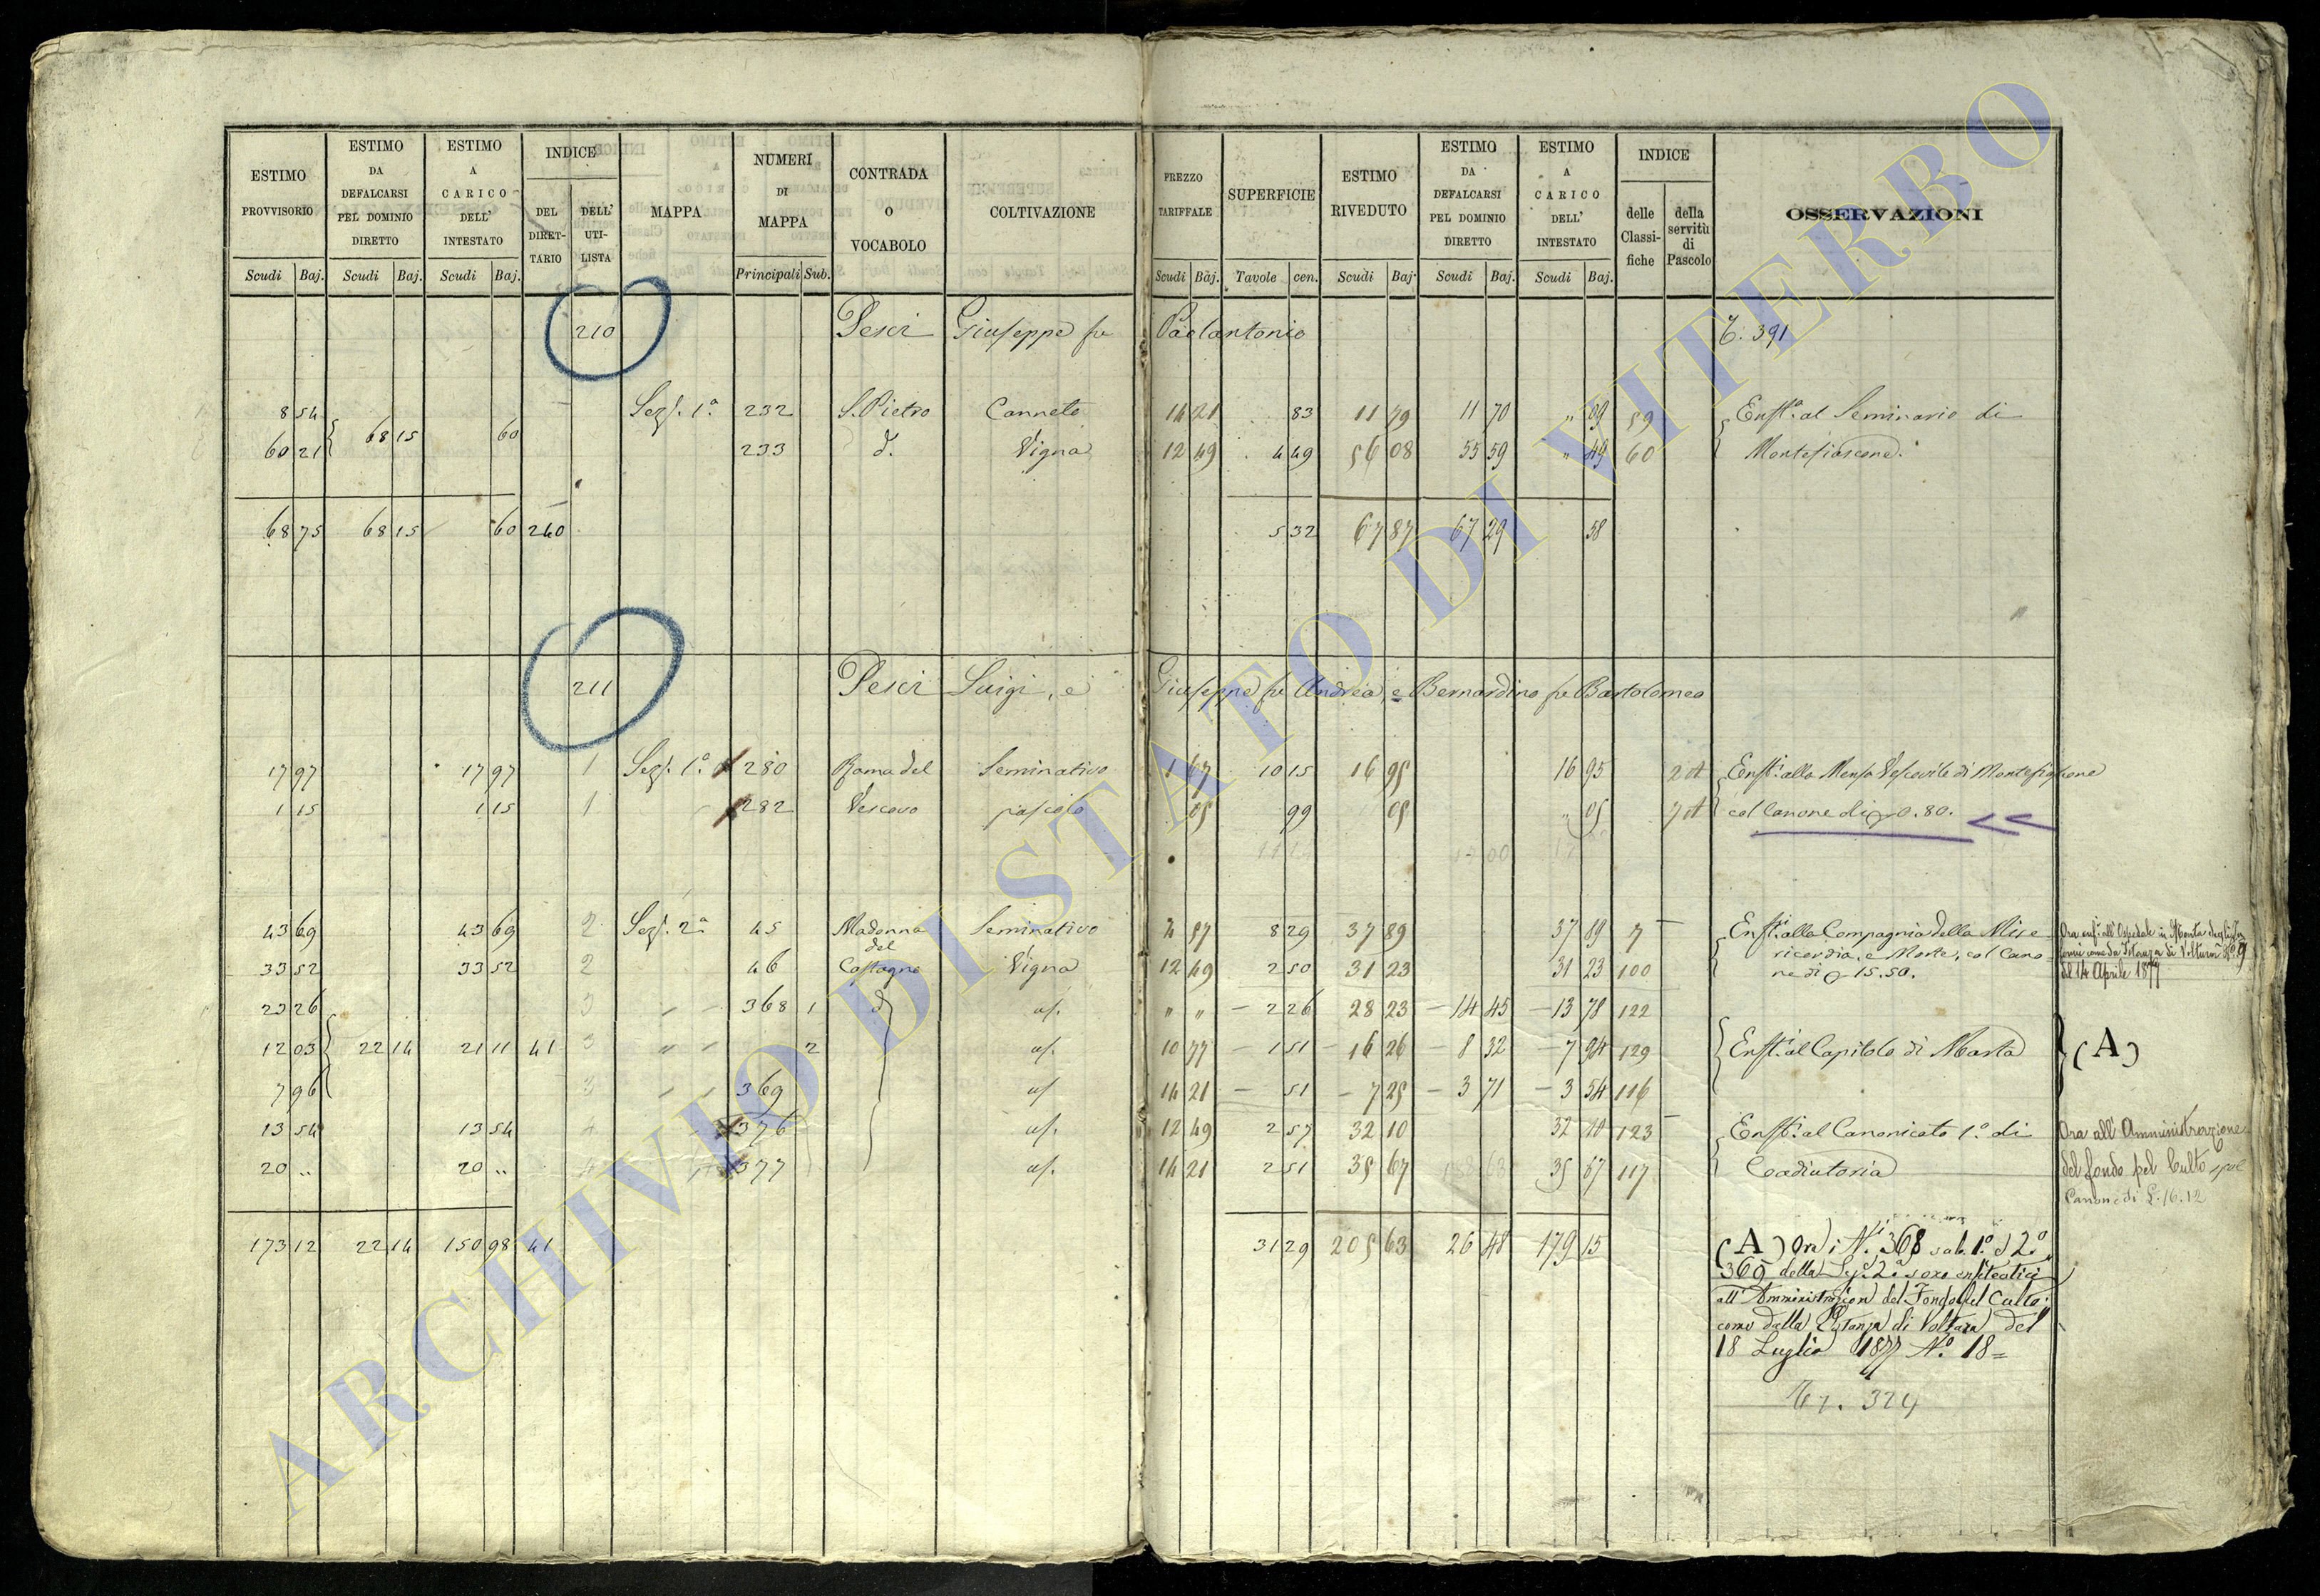 ESTIMO PROVVISORIO Scudi Baj.
ESTIMO DA DEFALCARSI PEL DOMINIO DIRETTO Scudi Baj.
ESTIMO A CARICO DELL' INTESTATO Scudi Baj.
INDICE DEL DIRETTARIO DELL' UTILISTA
MAPPA
NUMERI DI MAPPA Principali Sub.
CONTRADA O VOCABOLO
COLTIVAZIONE
PREZZO TARIFFALE Scudi Baj.
SUPERFICIE Tavole cen.
ESTIMO RIVEDUTO Scudi Baj.
ESTIMO DA DEFALCARSI PEL DOMINIO DIRETTO Scudi Baj.
ESTIMO A CARICO DELL' INTESTATO Scudi Baj.
INDICE delle Classifiche della servitù di Pascolo
OSSERVAZIONI
210 Pesci Giuseppe fu Paolantonio 391
8 54 Sez. 1ª 232 S. Pietro Canneto 14 21 83 11 79 11 70 " 09 59 Enfta al Seminario di
68 15 60
60 21 233 d. Vigna 12 49 4 49 56 08 55 59 " 49 60 Montefiascone.
68 75 68 15 60 240 5 32 67 87 67 29 58
211 Pesci Luigi, e Giuseppe fu Andrea, e Bernardino fu Bartolomeo
17 97 17 97 1 Sez. 1ª 280 Rama del Seminativo 1 67 10 15 16 95 16 95 2 A Enfti alla Mensa Vescovile di Montefiascone
1 15 1 15 1 282 Vescovo pascolo 05 99 05 " 05 7 A col Canone di 0.80.
43 69 43 69 2 Sez. 2ª 45 Madonna del Seminativo 4 57 8 29 37 89 37 89 7 Enfti alla Compagnia della Mise
33 52 33 52 2 46 Castagno Vigna 12 49 2 50 31 23 31 23 100 ricordia, e Morte, col Cano
ne di 15.50.
del 14 Aprile 1877
23 26 3 368 1 d " " 2 26 28 23 14 45 13 78 122
12 03 22 14 21 11 41 3 2 10 77 1 51 16 26 8 32 7 94 129 Enfti al Capitolo di Marta (A)
7 96 3 369 14 21 51 7 25 3 71 3 54 116
13 54 13 54 4 376 12 49 2 57 32 10 32 10 123 Enfti al Canonicato 1º di Ora all' Amministrazione
20 .. 20 .. 4 377 14 21 2 51 35 67 35 67 117 Coadiutoria del fondo pel Culto
Canone di L. 16.12
173 12 22 14 150 98 41 31 29 205 63 26 48 179 15
(A) Ora i Ni 368 sub. 1º e 2º
369 della Sez. 2ª sono enfiteotici
all' Amministrazion del Fondo pel Culto
come dalla Istanza di Voltura del
18 Luglio 1877 Nº 18
324
ARCHIVIO DI STATO DI VITERBO